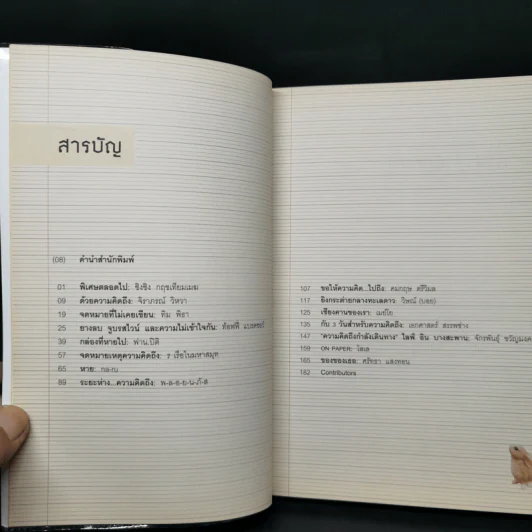 สารบัญ
(08) คำนำสำนักพิมพ์
01 พิเศษตลอดไป: ชิงชิง กฤชเทียมเมฆ
09 ด้วยความคิดถึง: จิราภรณ์ วิหวา
19 จดหมายที่ไม่เคยเขียน: ทิม พิธา
27 ยางลบ จูบรสไวน์ และความไม่เข้าใจกัน: ท้อฟฟี่ แบรดชอว์
39 กล่องที่หายไป: ฟาน.ปีติ
57 จดหมายเหตุความคิดถึง: ร เรือในมหาสมุท
65 หวย: กล-ณ
89 ระยะห่าง...ความคิดถึง: พ-ล-อ-ย-น-ภั-ส
107 ขอให้ความคิด...ไปถึง: คมกฤษ ตรีวิมล
117 ยิงกระต่ายกลางทะเลดาว: วิษณ์ (บอย)
125 เชียงคานของเรา: เมย์โย
135 กับ 3 วันสำหรับความคิดถึง: เอกศาสตร์ สรรพช่าง
147 "ความคิดถึงกำลังเดินทาง" ไลฟ์ อิน บางสะพาน: จักรพันธุ์ ขวัญมงคล
159 ON PAPER: โตเล
165 ของของเธอ: ศรีทรา แสงทอน
182 Contributors